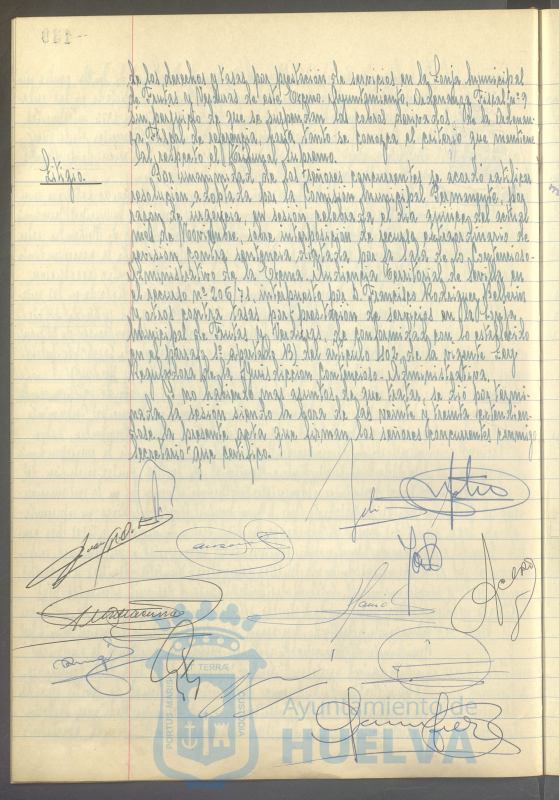 de los derechos y tasas por prestación de servicios en la Lonja Municipal
de Frutas y Verduras de este Excmo. Ayuntamiento, Ordenanza Fiscal nº 9
sin perjuicio de que se suspendan los cobros derivados de la Ordenan-
za Fiscal de referencia, hasta tanto se conozca el criterio que mantiene
tal respecto el Tribunal Supremo.
Litigio.
Por unanimidad de los señores concurrentes se acordó ratificar
resolución adoptada por la Comisión Municipal Permanente, por
razón de urgencia, en sesión celebrada el día quince del actual
mes de Noviembre, sobre interposición de recurso extraordinario de
revisión contra sentencia dictada por la Sala de lo Contencioso-
Administrativo de la Excma. Audiencia Territorial de Sevilla en
el recurso nº 206/71, interpuesto por D. Francisco Rodríguez
y otros contra tasas por prestación de servicios en la Lonja
Municipal de Frutas y Verduras, de conformidad con lo establecido
en el párrafo 1º apartado B) del artículo 102 de la vigente Ley
Reguladora de la Jurisdicción Contencioso-Administrativa.
Y no habiendo más asuntos de que tratar, se dió por termi-
nada la sesión siendo la hora de las veinte y treinta extendién-
dose la presente acta que firman los señores concurrentes conmigo
Secretario que certifico.
PORTUS MARIS
TERRAE
CUSTODIA
Ayuntamiento de
HUELVA